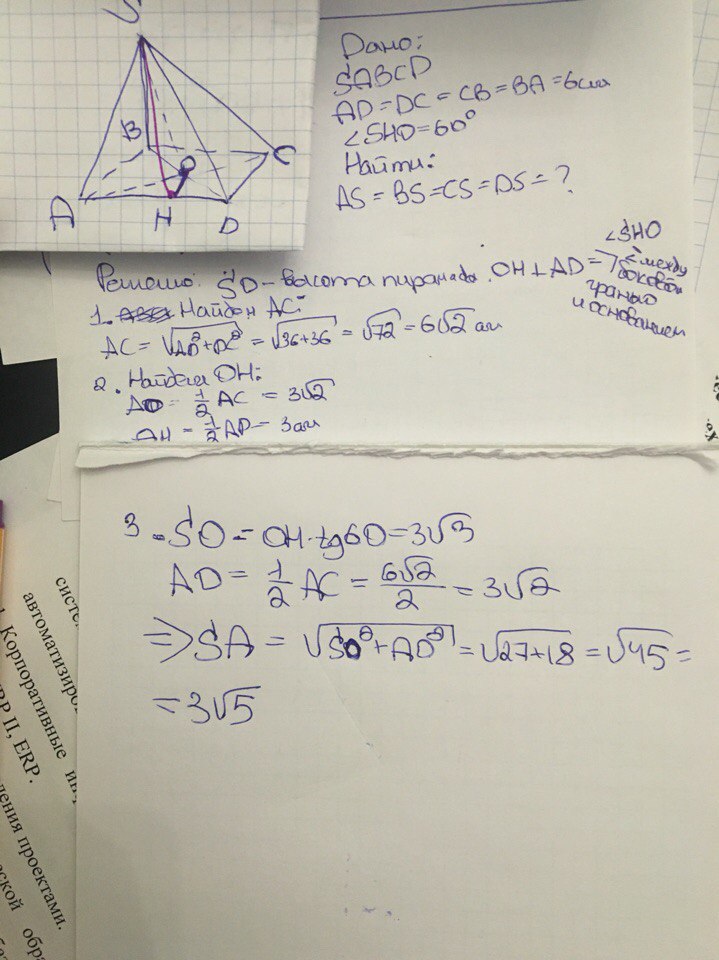 S
B
C
O
A
H
D
Дано:
SABCD
AD = DC = CB = BA = 6см
∠SHO = 60°
Найти:
AS = BS = CS = DS = ?
Решение: SO - высота пирамиды. OH ⊥ AD =>
∠SHO
∠ между
боковой
гранью
и основанием
1. Найдем AC:
AC = √AD²+DC² = √36+36 = √72 = 6√2 см
2. Найдем OH:
AO = 1/2 AC = 3√2
OH = 1/2 AD = 3см
3. SO = OH·tg60 = 3√3
AO = 1/2 AC = 6√2/2 = 3√2
=> SA = √SO²+AO² = √27+18 = √45 =
= 3√5
автоматизиро
Корпоративные ин
RP II, ERP.
ления проектами.